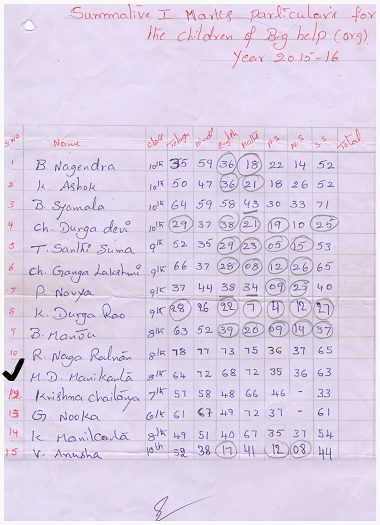 Summative I Marks particulars for
the children of Big help (org)
Year 2015-16
S.NO Name class Telugu Hindi English Maths P.S N.S S.S Total
1 B. Nagendra 10th 35 59 36 18 22 14 52
2 K. Ashok 10th 50 47 36 21 18 26 52
3 B. Syamala 10th 64 59 58 43 30 33 71
4 Ch. Durga devi 10th 29 37 38 21 19 10 25
5 T. Santhi Suma 9th 52 35 29 23 05 15 53
6 Ch. Ganga Lakshmi 9th 66 37 28 08 12 26 65
7 P. Navya 9th 37 44 38 34 09 25 40
8 K. Durga Rao 9th 28 26 22 7 4 12 27
9 B. Manju 8th 63 52 39 20 09 14 37
10 R. Naga Ratnam 8th 78 77 73 75 36 37 65
M.D. Manikanta 8th 64 72 68 72 35 36 63
12 Krishna chaitanya 7th 57 58 48 66 46 - 33
13 G. Nooka 6th 61 67 49 72 37 - 61
14 K. Manikanta 8th 49 51 40 67 35 37 54
15 V. Anusha 10th 52 38 17 41 12 08 44